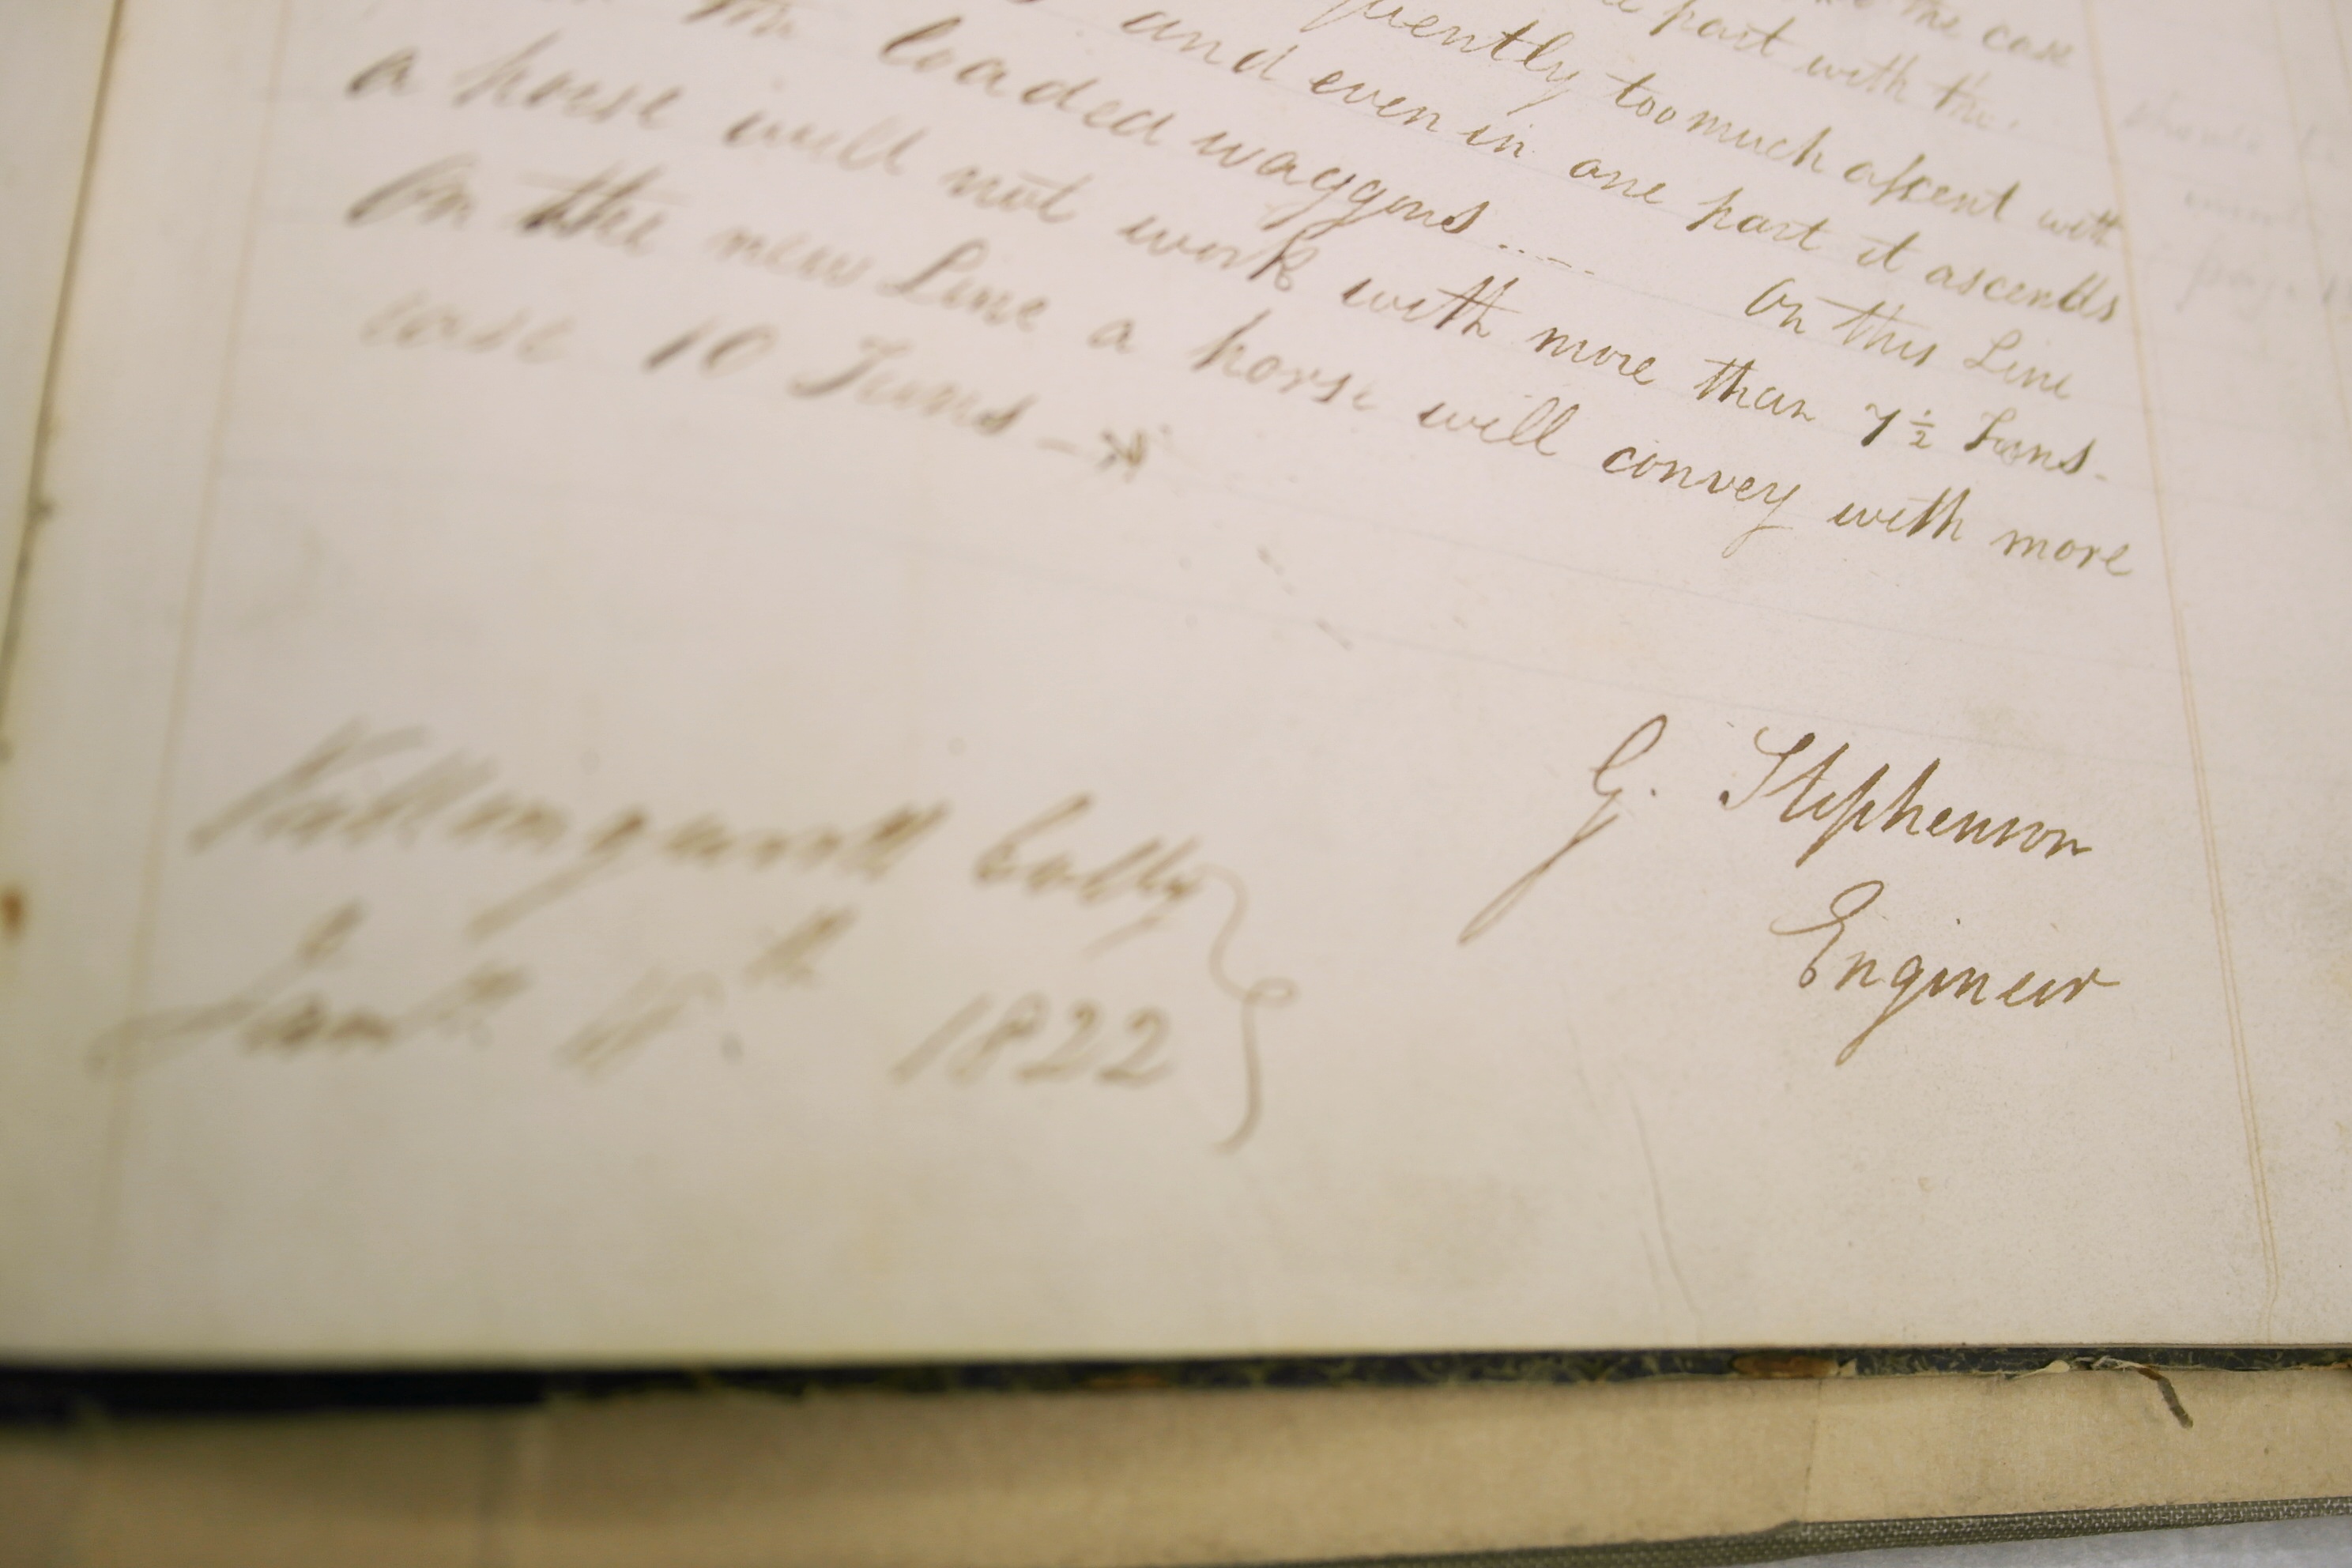 the case
part with the
quently too much ascent with
and even in one part it ascends
the loaded waggons ..... On this Line
a horse will not work with more than 7½ Tons -
On the new Line a horse will convey with more
ease 10 Tons
G. Stephenson
Engineer
Killingworth Colly
Jany 18th 1822